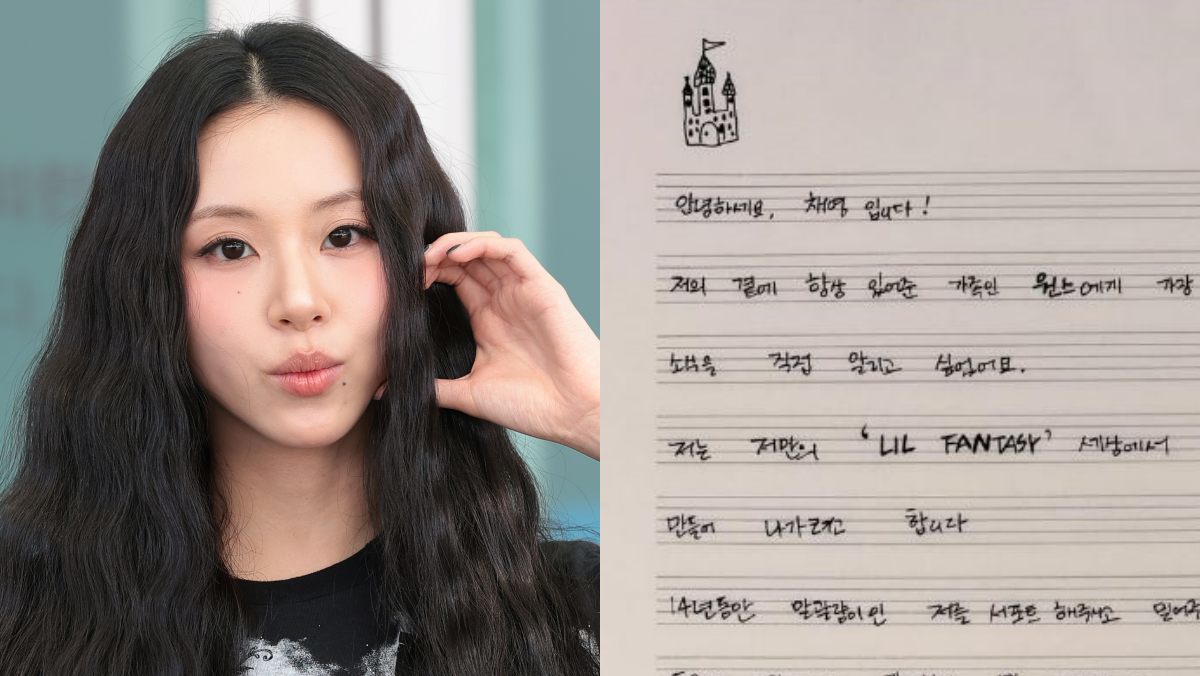 안녕하세요, 채영 입니다!
저의 곁에 항상 있어준 가족인 원스에게 가장
소식을 직접 알리고 싶었어요.
저는 저만의 'LIL FANTASY' 세상에서
만들어 나가려고 합니다
14년동안 말괄량이인 저를 서포트 해주시고 믿어주